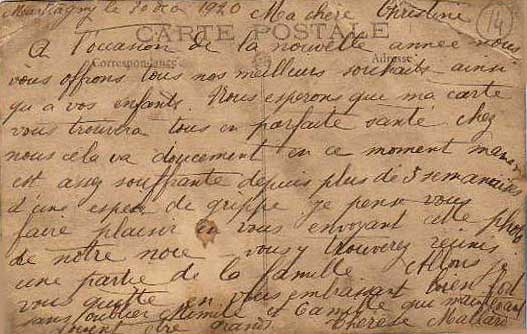 le 20 1920 Ma chère Christine
14
CARTE POSTALE
Correspondance Adresse
A l'occasion de la nouvelle année nous
vous offrons tous nos meilleurs souhaits ainsi
qu a vos enfants. Nous esperons que ma carte
vous trouvera tous en parfaite santé chez
nous cela va doucement en ce moment maman
est assez souffrante depuis plus de 3 semaines
d'une espece de grippe je pense vous
faire plaisir en vous envoyant cette photo
de notre noce vous y trouverez reunis
une partie de la famille Allons je
vous quitte en vous embrassant bien fort
sans oublier Mimile et Camille qui maintenant
doivent etre grands. Thérèse